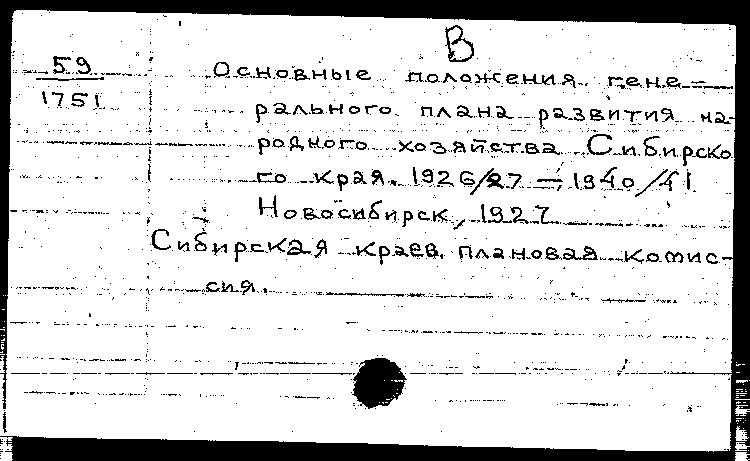 В
59
1751
Основные положения гене-
рального плана развития на-
родного хозяйства Сибирско
го края. 1926/27 — 1940/41
Новосибирск, 1927
Сибирская краев. плановая комис-
сия.